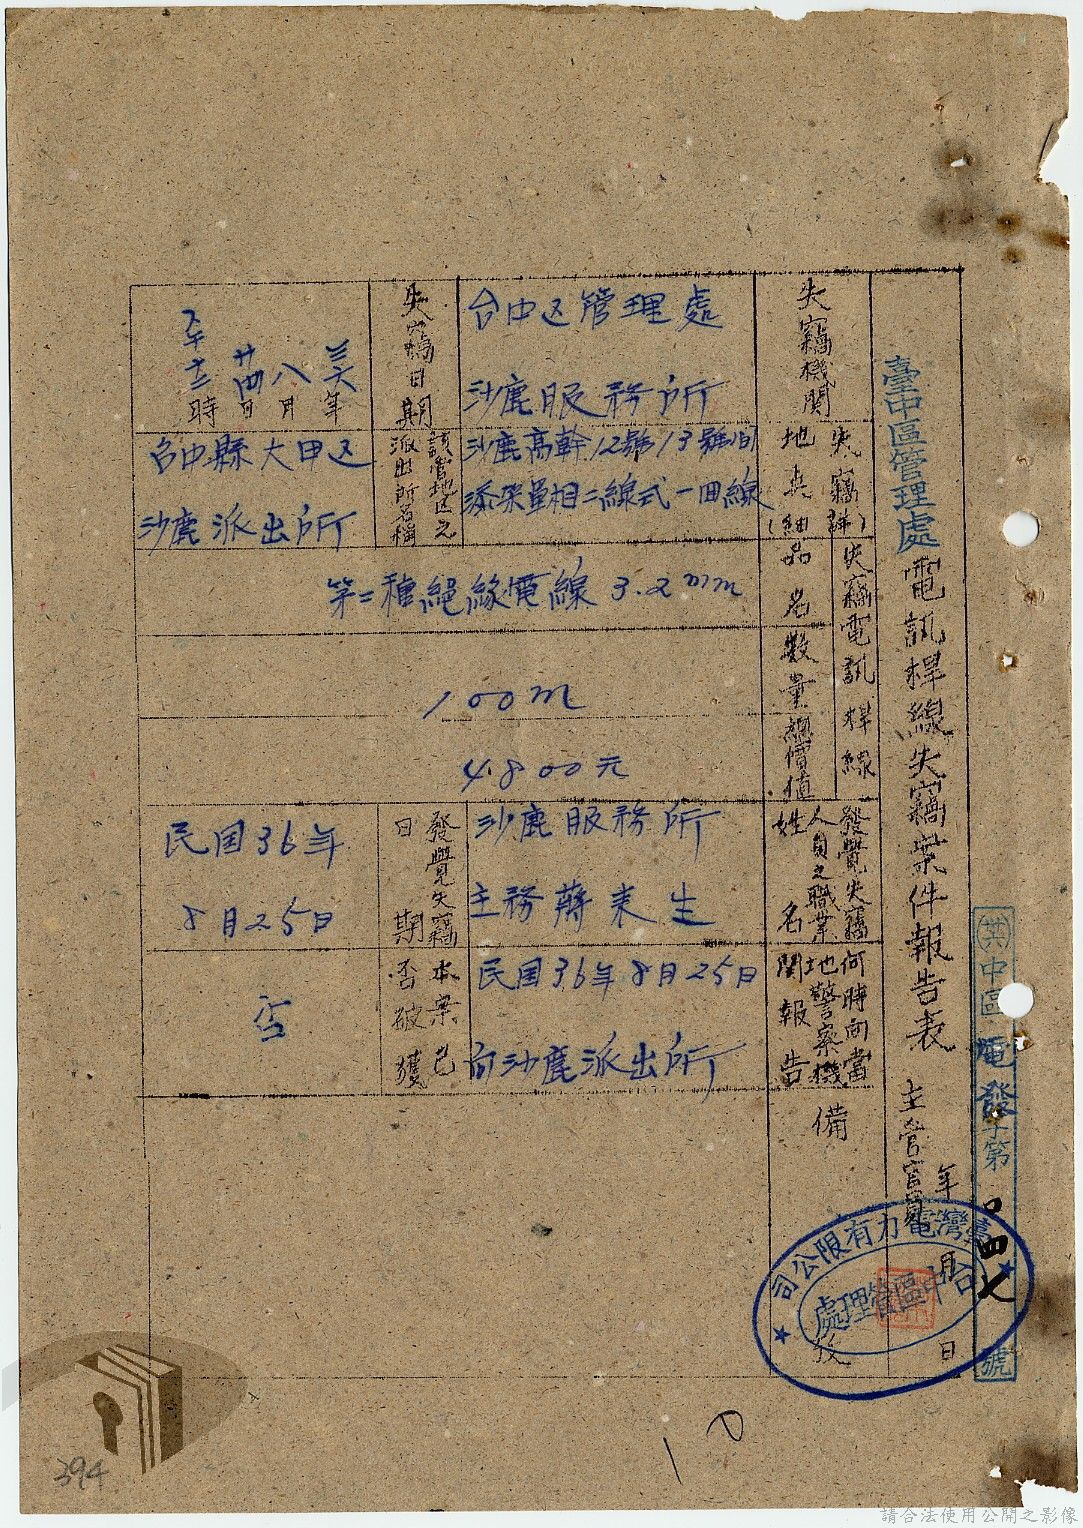 臺中區管理處電訊桿線失竊案件報告表
主管官員
年 月 日
中區電發字第四七號
失竊機關
台中区管理處
沙鹿服務所
失竊日期
三六年
八月
廿四日
午十二時
失竊詳細地點
沙鹿高幹12號13號間
添架單相二線式一回線
該管地区之派出所名稱
台中縣大甲区
沙鹿派出所
失竊電訊桿線
品名
第二種絕緣電線 3.2mm
數量
100m
總價值
4.800元
發覺失竊人員之職業姓名
沙鹿服務所
主務蔣来生
發覺失竊日期
民国36年
8月25日
何時向當地警察機關報告
民国36年8月25日
向沙鹿派出所
本案已否破獲
否
備
攷
臺灣電力有限公司
台中區管理處
394
請合法使用公開之影像